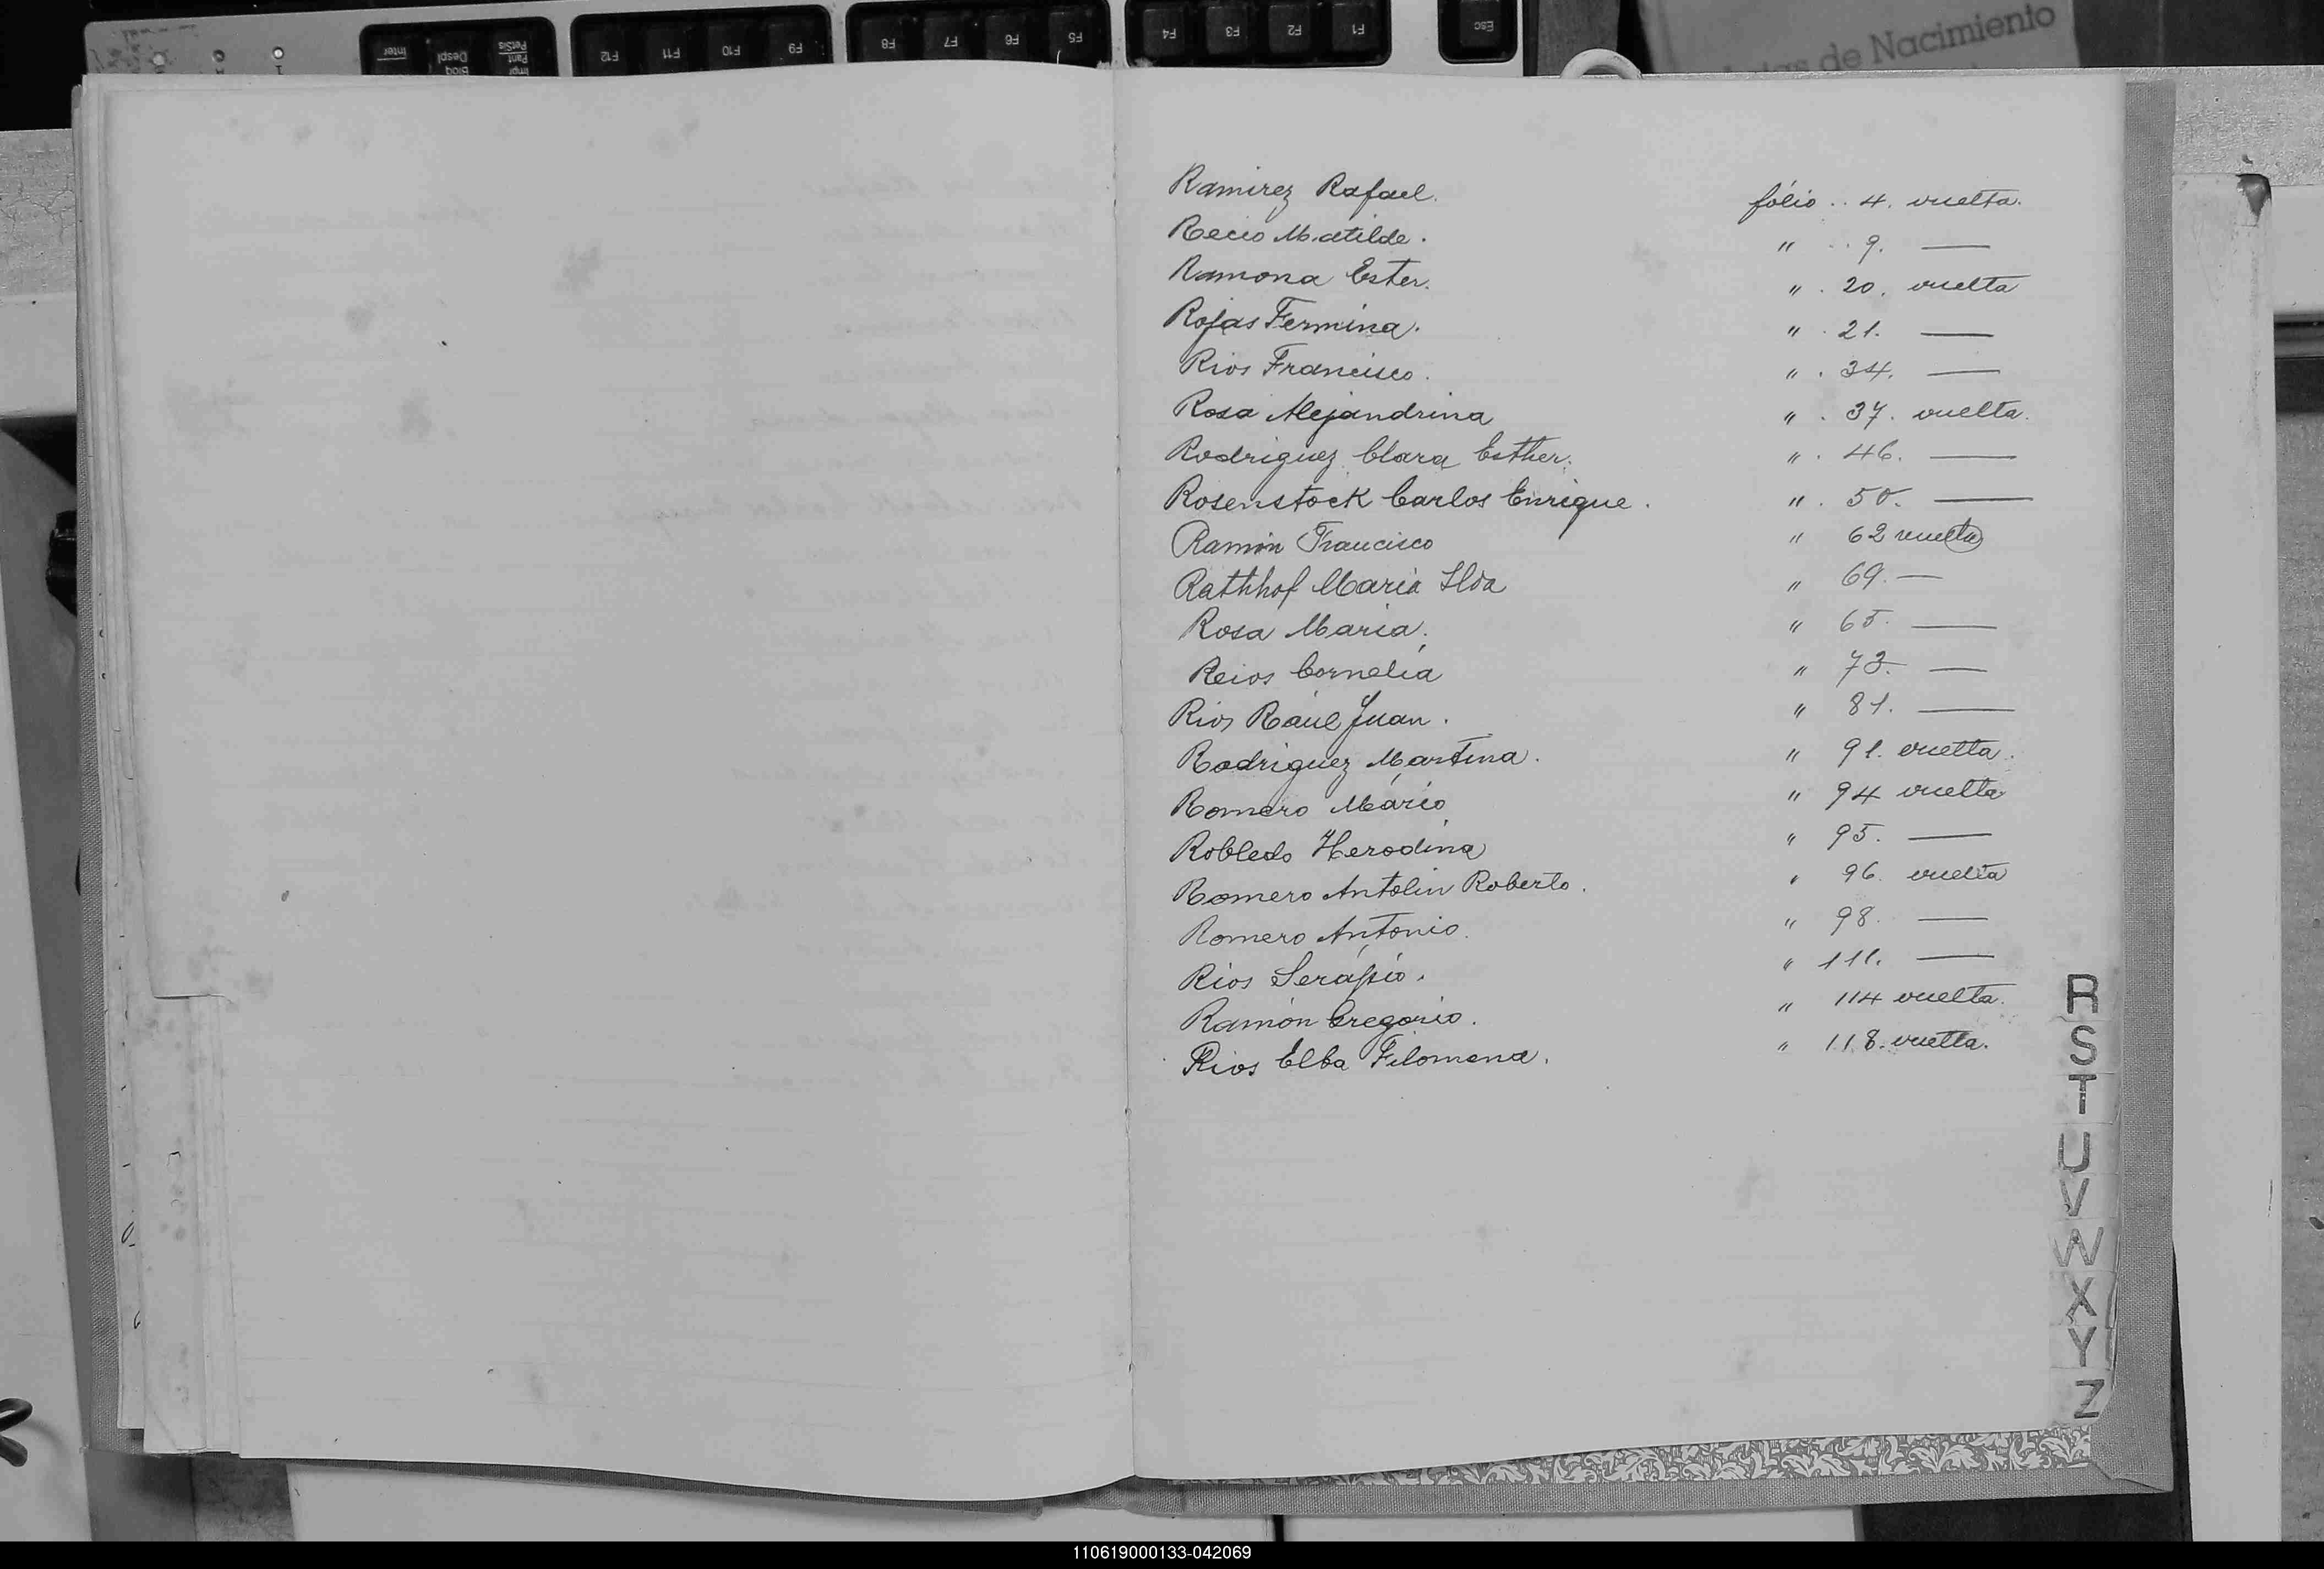 Inter
Despl
Bloq
PetSis
Impr
Pant
F12
F11
F10
F9
F8
F7
F6
F5
F4
F3
F2
F1
Esc
de Nacimiento
Ramirez Rafael. fólio .. 4. vuelta.
Recio Matilde. " .. 9. —
Ramona Ester. " . 20. vuelta
Rojas Fermina. " . 21. —
Rios Francisco. " . 34. —
Rosa Alejandrina " . 37. vuelta.
Rodriguez Clara Esther. " . 46. —
Rosenstock Carlos Enrique. " . 50. —
Ramón Francisco " 62 vuelta
Rathhof Maria Ilda " 69. —
Rosa Maria. " 65. —
Reios Cornelia " 73. —
Rios Raúl Juan. " 81. —
Rodriguez Martina. " 91. vuelta.
Romero Mario " 94 vuelta
Robledo Herodina " 95. —
Romero Antolin Roberto. " 96. vuelta
Romero Antonio. " 98. —
Rios Serápio. " 111. —
Ramón Gregorio. " 114 vuelta.
Rios Elba Filomena. " 118. vuelta.
R
S
T
U
V
W
X
Y
Z
110619000133-042069